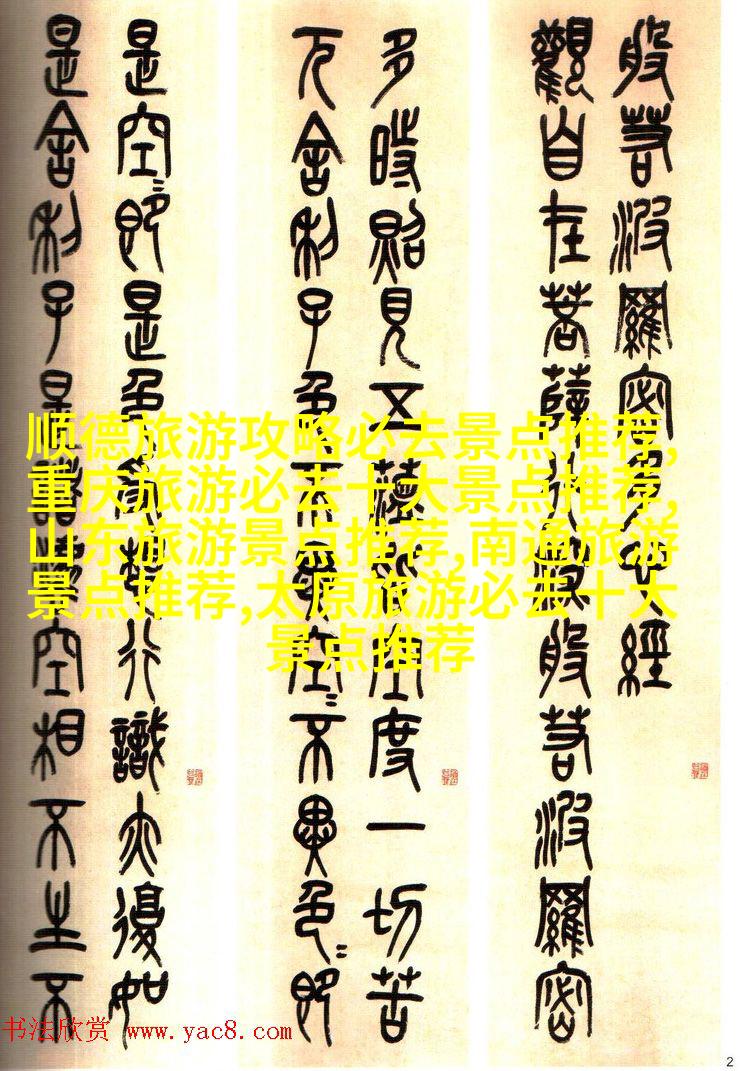 般若波羅密多心經
觀自在菩薩行深般若波羅密
多時照見五蘊皆空度一切苦
厄舍利子色不異空〻不異色〻即
是空〻即是色受想行識亦復如
是舍利子是諸法空相不生不
顺德旅游攻略必去景点推荐,
重庆旅游必去十大景点推荐,
山东旅游景点推荐,南通旅游
景点推荐,太原旅游必去十大
景点推荐
书法欣赏 www.yac8.com
2